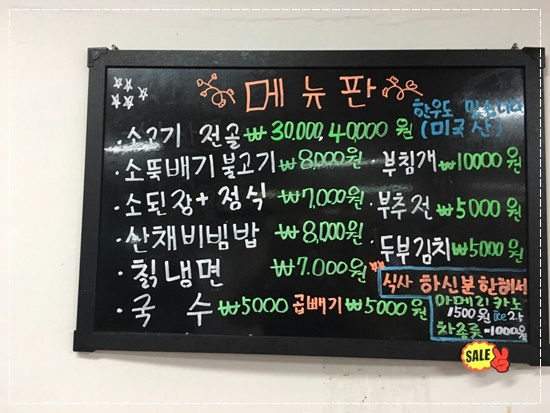 메뉴판
한우도
(미국산)
·소고기 전골 ₩30,000, 40000원
·소뚝배기불고기 ₩8,000원
·부침개 ₩10000원
·소된장+정식 ₩7,000원
·부추전 ₩5000원
·산채비빔밥 ₩8,000원
·두부김치 ₩5000원
·칡냉면 ₩7.000원
·국 수 ₩5000 곱빼기 ₩5000원
식사 하신분한해서
아메리카노
1500원 ice2천
차종류-1000원
SALE